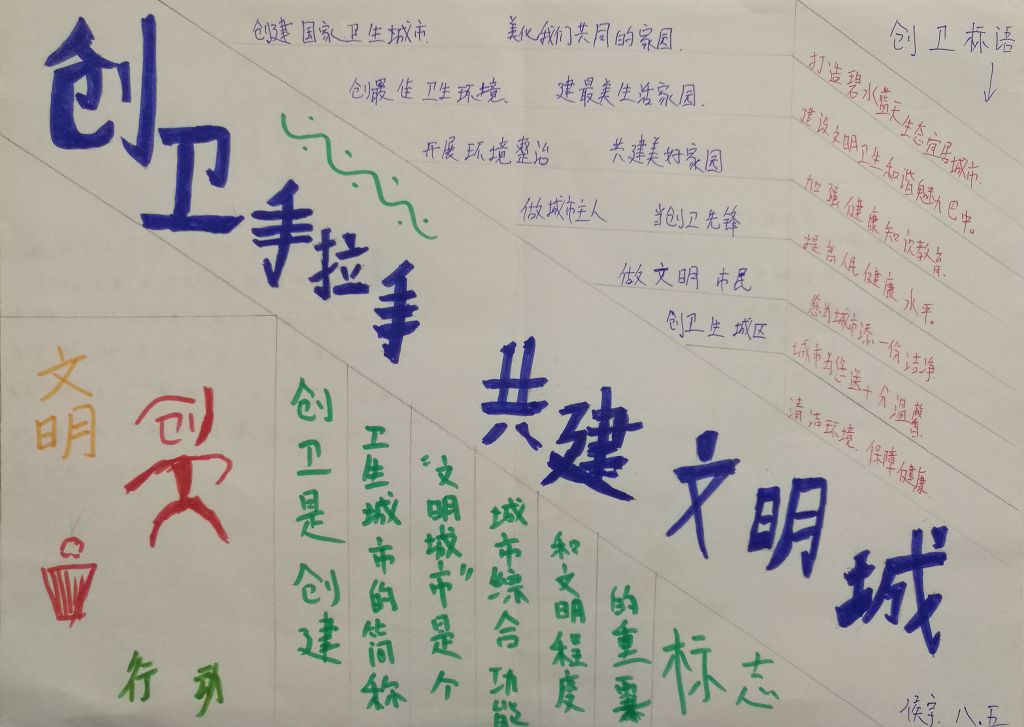 创卫手拉手 共建文明城
创建国家卫生城市 美化我们共同的家园.
创最佳卫生环境、 建最美生活家园.
开展环境整治 共建美好家园
做城市主人 当创卫先锋
做文明市民
创卫生城区
创卫标语
打造碧水蓝天生态宜居城市.
建设文明卫生和谐魅力巴中。
加强健康知识教育.
提高人民健康水平。
您为城市添一份洁净
城市为您送十分温馨.
清洁环境.保障健康.
文明
创
行动
创卫是创建
卫生城市的简称
“文明城市”是个
城市综合功能
和文明程度
的重要
标志
八.五